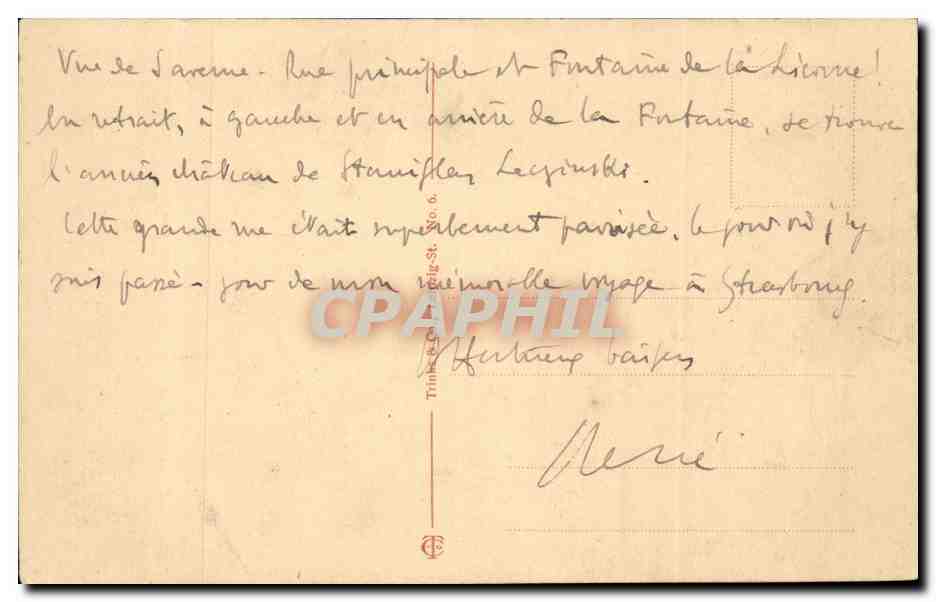 Vue de Saverne - Rue principale et Fontaine de la Licorne!
En retrait, à gauche et en arrière de la Fontaine, se trouve
l'ancien château de Stanislas Leczinski.
Cette grande rue était superbement pavoisée, le jour où j'y
suis passé - jour de mon mémorable voyage à Strasbourg.
Affectueux baisers
René
Trinks & C Leipzig-St. No. 6.
CPAPHIL